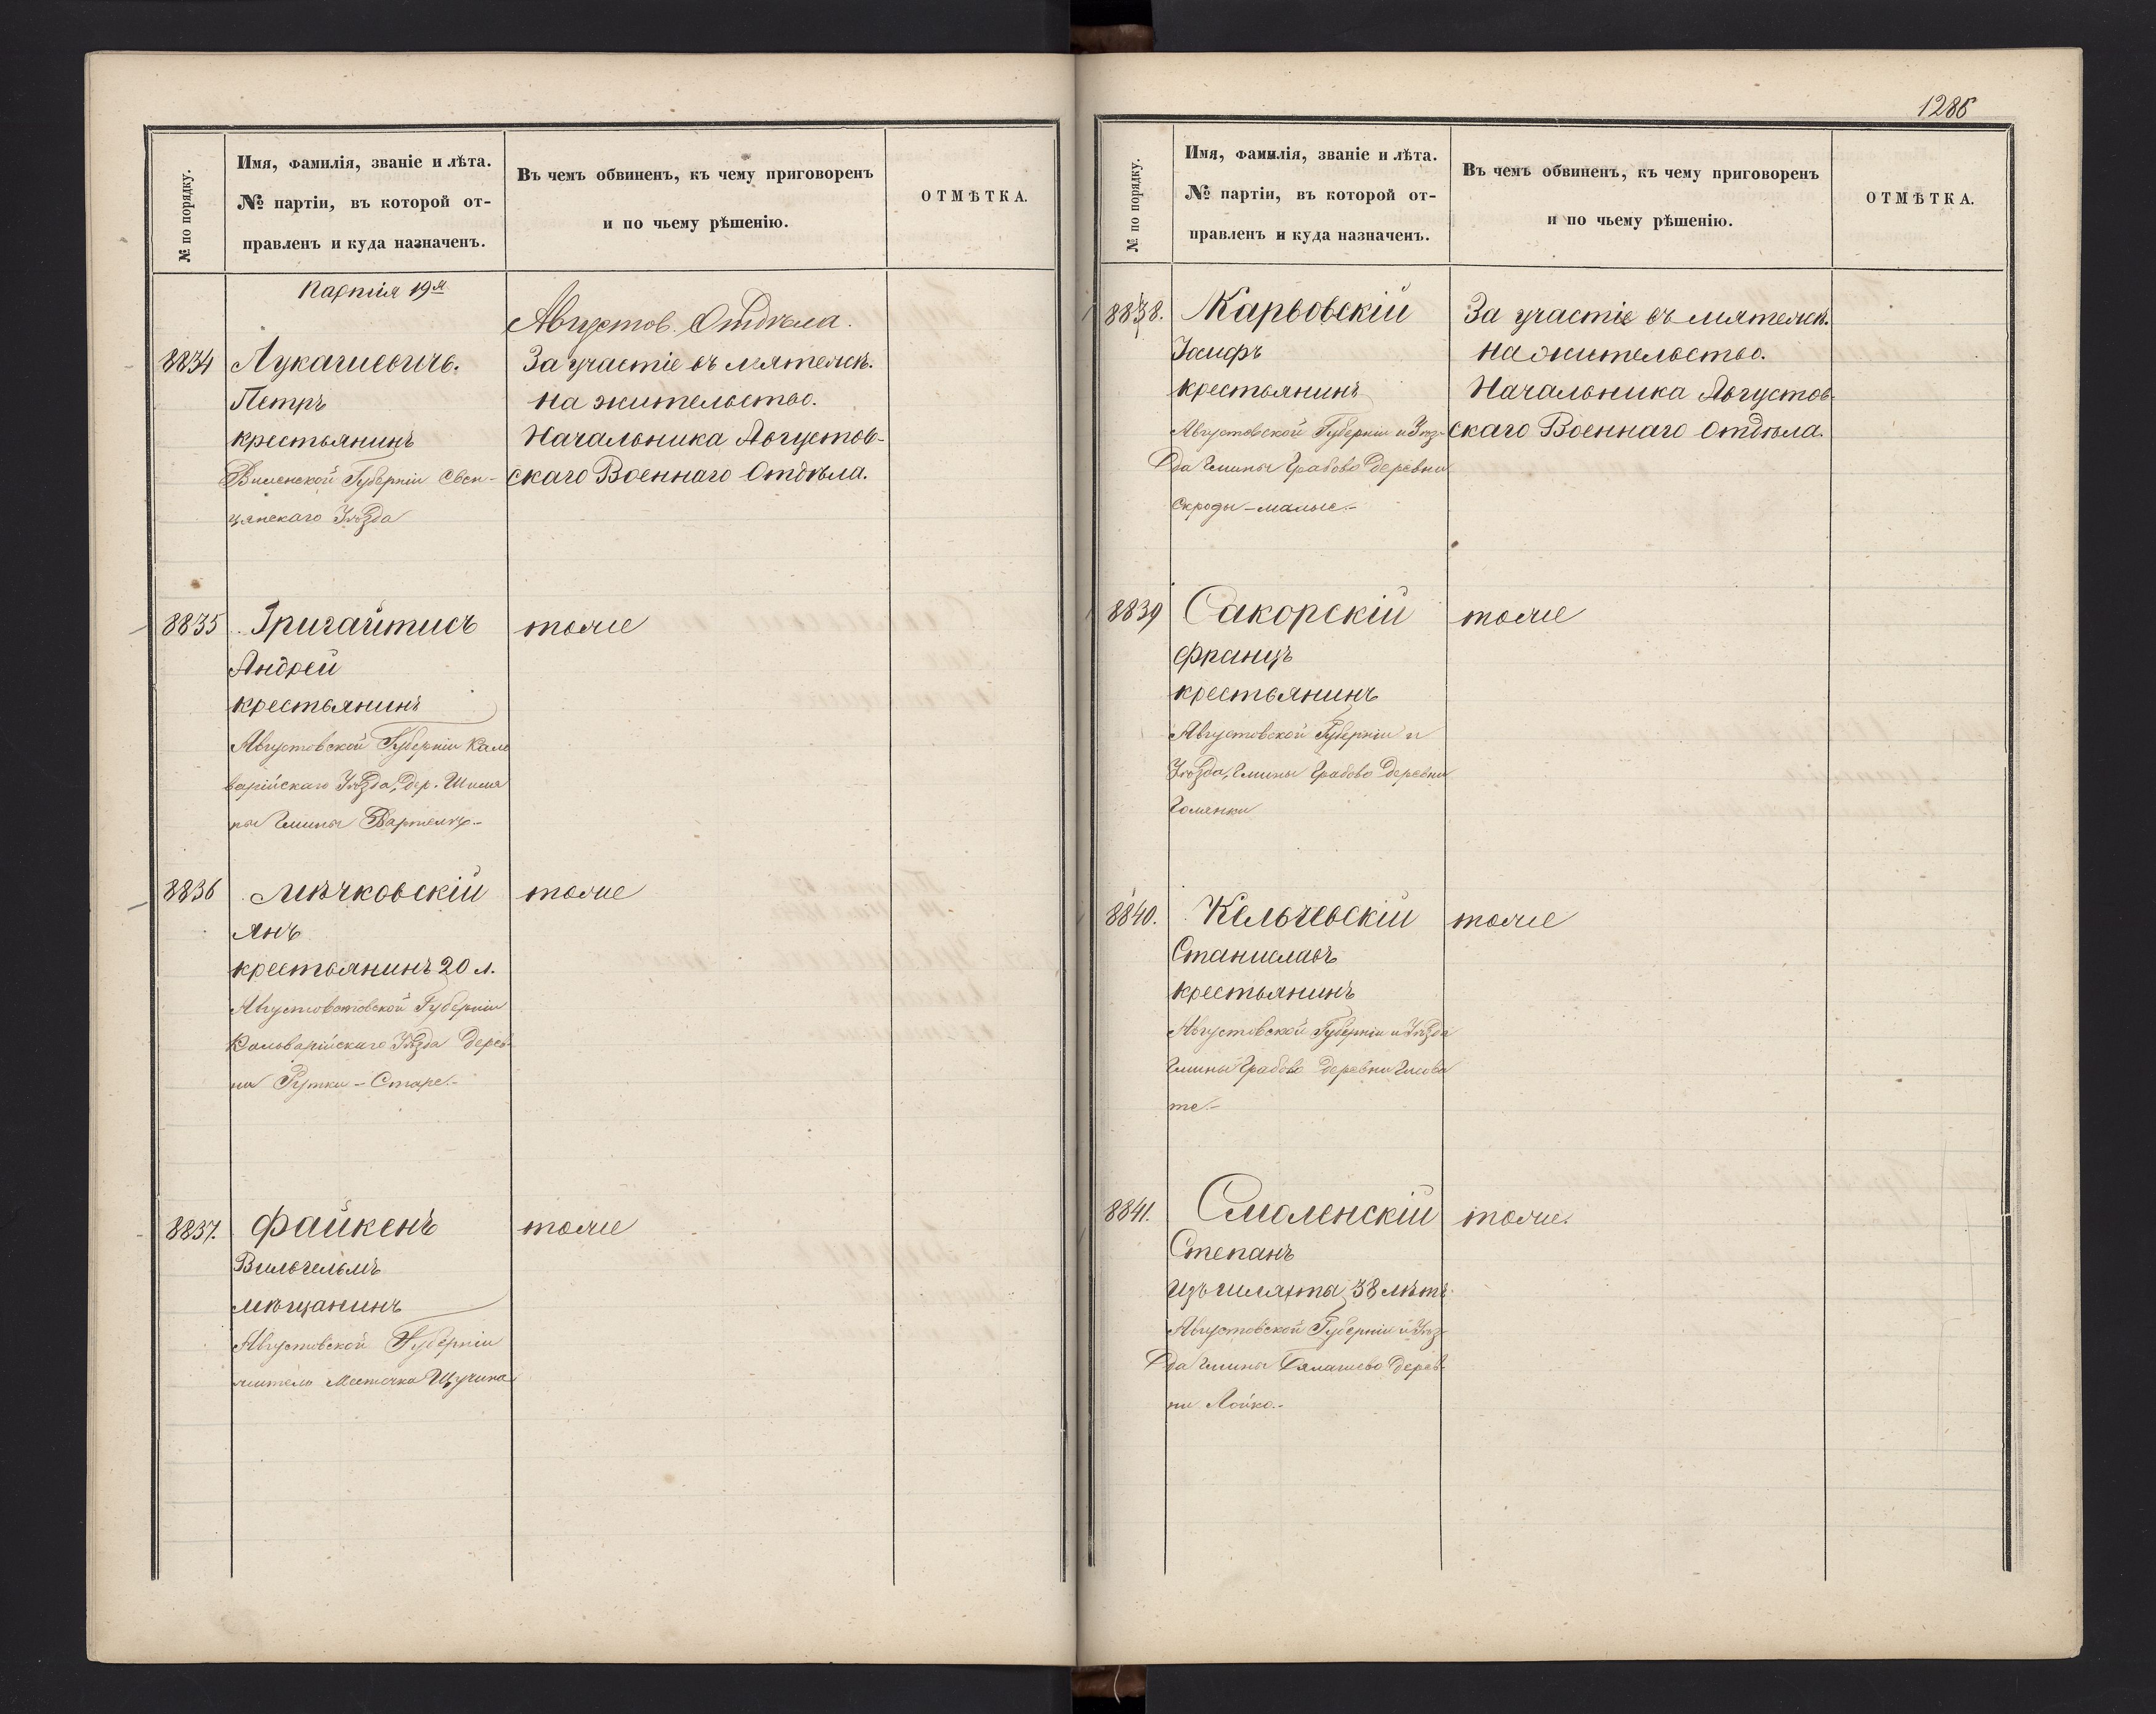 № по порядку.
Имя, фамилія, званіе и лѣта.
№ партіи, въ которой от-
правленъ и куда назначенъ.
Въ чемъ обвиненъ, къ чему приговоренъ
и по чьему рѣшенію.
ОТМѢТКА.
Партія 19я
Августов. Отдѣла.
8834 Лукашевичъ. За участіе въ мятежѣ.
Петръ на жительство.
крестьянинъ Начальника Августов-
Виленской Губерніи Свен- скаго Военнаго Отдѣла.
цянскаго Уѣзда
8835 Григайтисъ тоже
Андрей
крестьянинъ
Августовской Губерніи Каль
варійскаго Уѣзда, Дер.
ны Гмины
8836 Мѣчковскій тоже
Янъ
крестьянинъ 20 л.
Августовстовской Губерніи
Кальварійскаго Уѣзда Дерев-
ни Рутки-Старе.-
8837. Файкенъ тоже
Вильгельмъ
мѣщанинъ
Августовской Губерніи
житель Местечка Щучина
1286
№ по порядку.
Имя, фамилія, званіе и лѣта.
№ партіи, въ которой от-
правленъ и куда назначенъ.
Въ чемъ обвиненъ, къ чему приговоренъ
и по чьему рѣшенію.
ОТМѢТКА.
8838. Карвовскій За участіе въ мятежѣ.
Іосифъ на жительство.
крестьянинъ Начальника Августов-
Августовской Губерніи и Уѣз- скаго Военнаго Отдѣла.
да Гмины Грабово Деревни
Скроды-малые.-
8839 Сакорскій тоже
Францъ
крестьянинъ
Августовской Губерніи и
Уѣзда, Гмины Грабово Деревни
Голянки
8840. Кельчевскій тоже
Станиславъ
крестьянинъ
Августовской Губерніи и Уѣзда
Гмины Грабово Деревни Гнева
те.-
8841. Смоленскій тоже.
Степанъ
изъ шляхты 38 лѣтъ
Августовской Губерніи и Уѣз-
да Гмины Деревни
ни Лойко.-